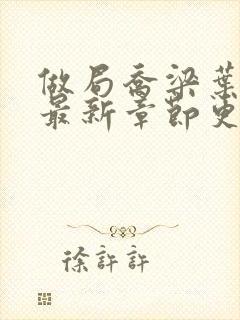 做局乔梁葉
最新章節更
徐許許